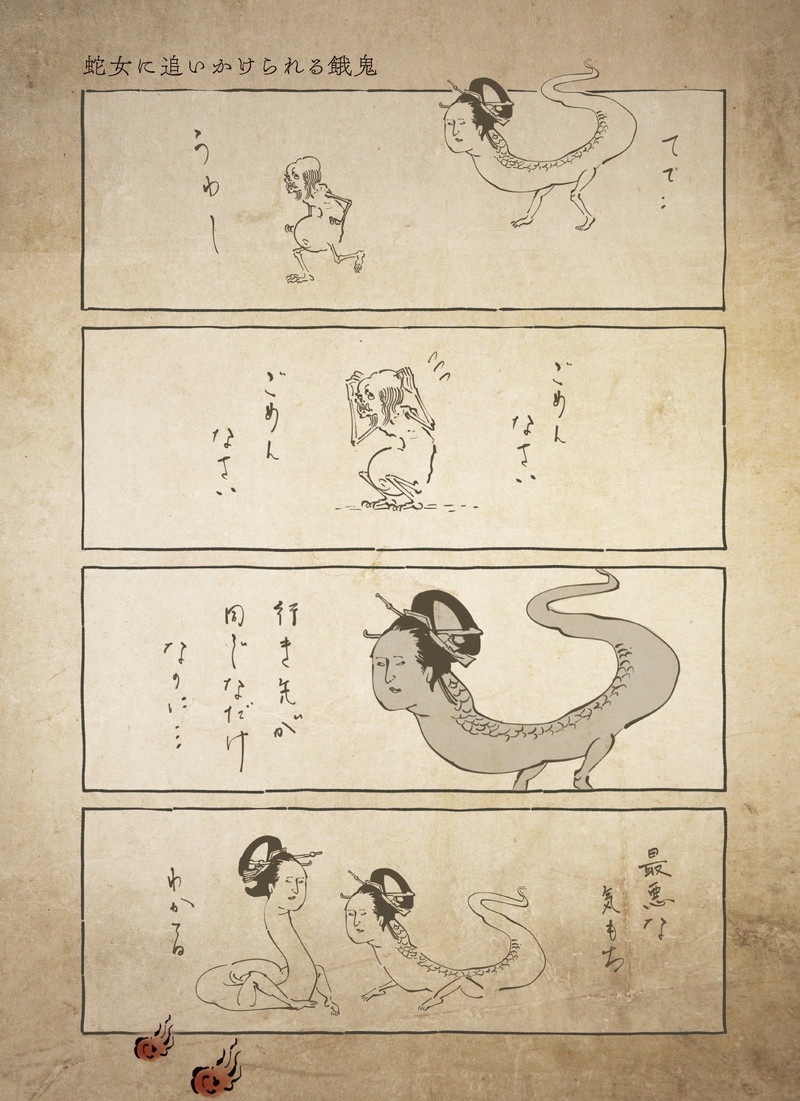 蛇女に追いかけられる餓鬼
てで…
うわー
ごめん
なさい
ごめん
なさい
行き先が
同じなだけ
なのに…
最悪な
気もち
わかる